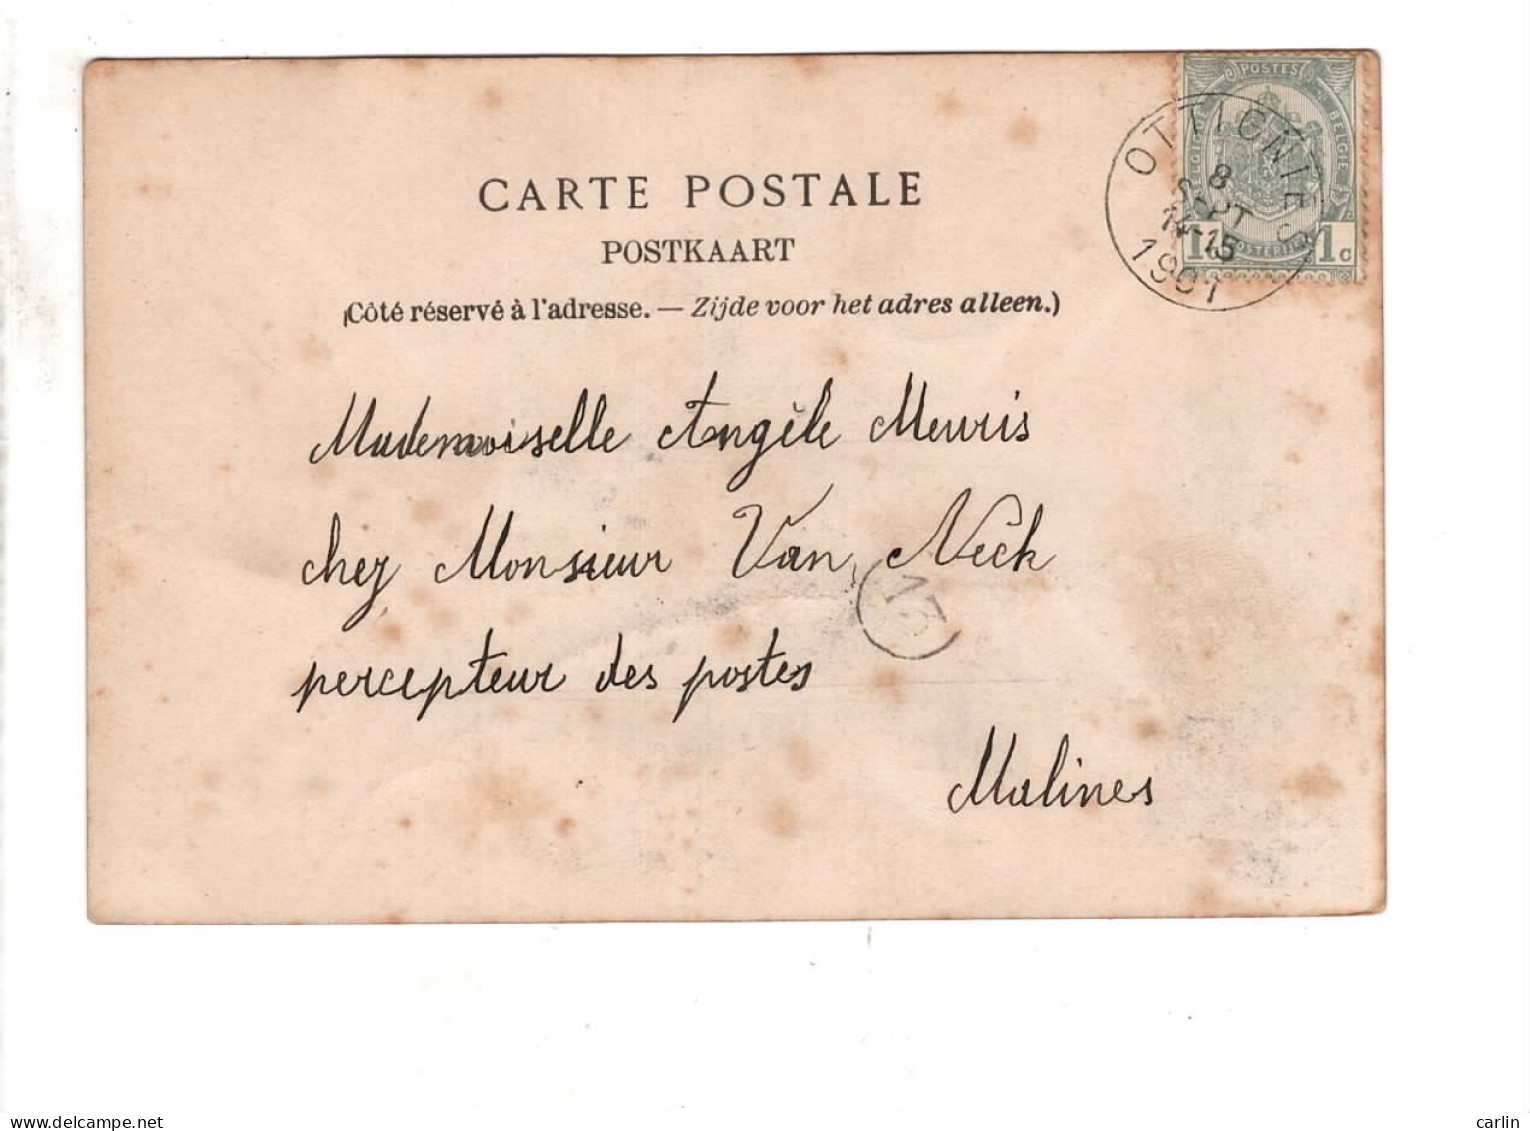 POSTES
BELGIQUE BELGIE
1c POSTERIJEN 1c
OTTIGNIES
8
SEPT
14-15
1901
CARTE POSTALE
POSTKAART
(Côté réservé à l'adresse. — Zijde voor het adres alleen.)
Mademoiselle Angèle Meuris
chez Monsieur Van Neck
13
percepteur des postes
Malines
delcampe.net
carlin